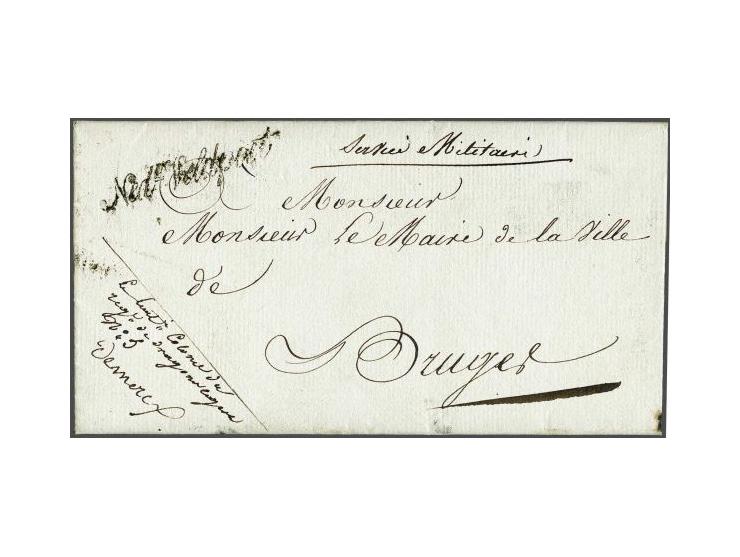 Service Militaire
Monsieur
Monsieur Le Maire de la Ville
de
Bruges
Le Lieut. Colonel du
reg. de dragons
N° 5